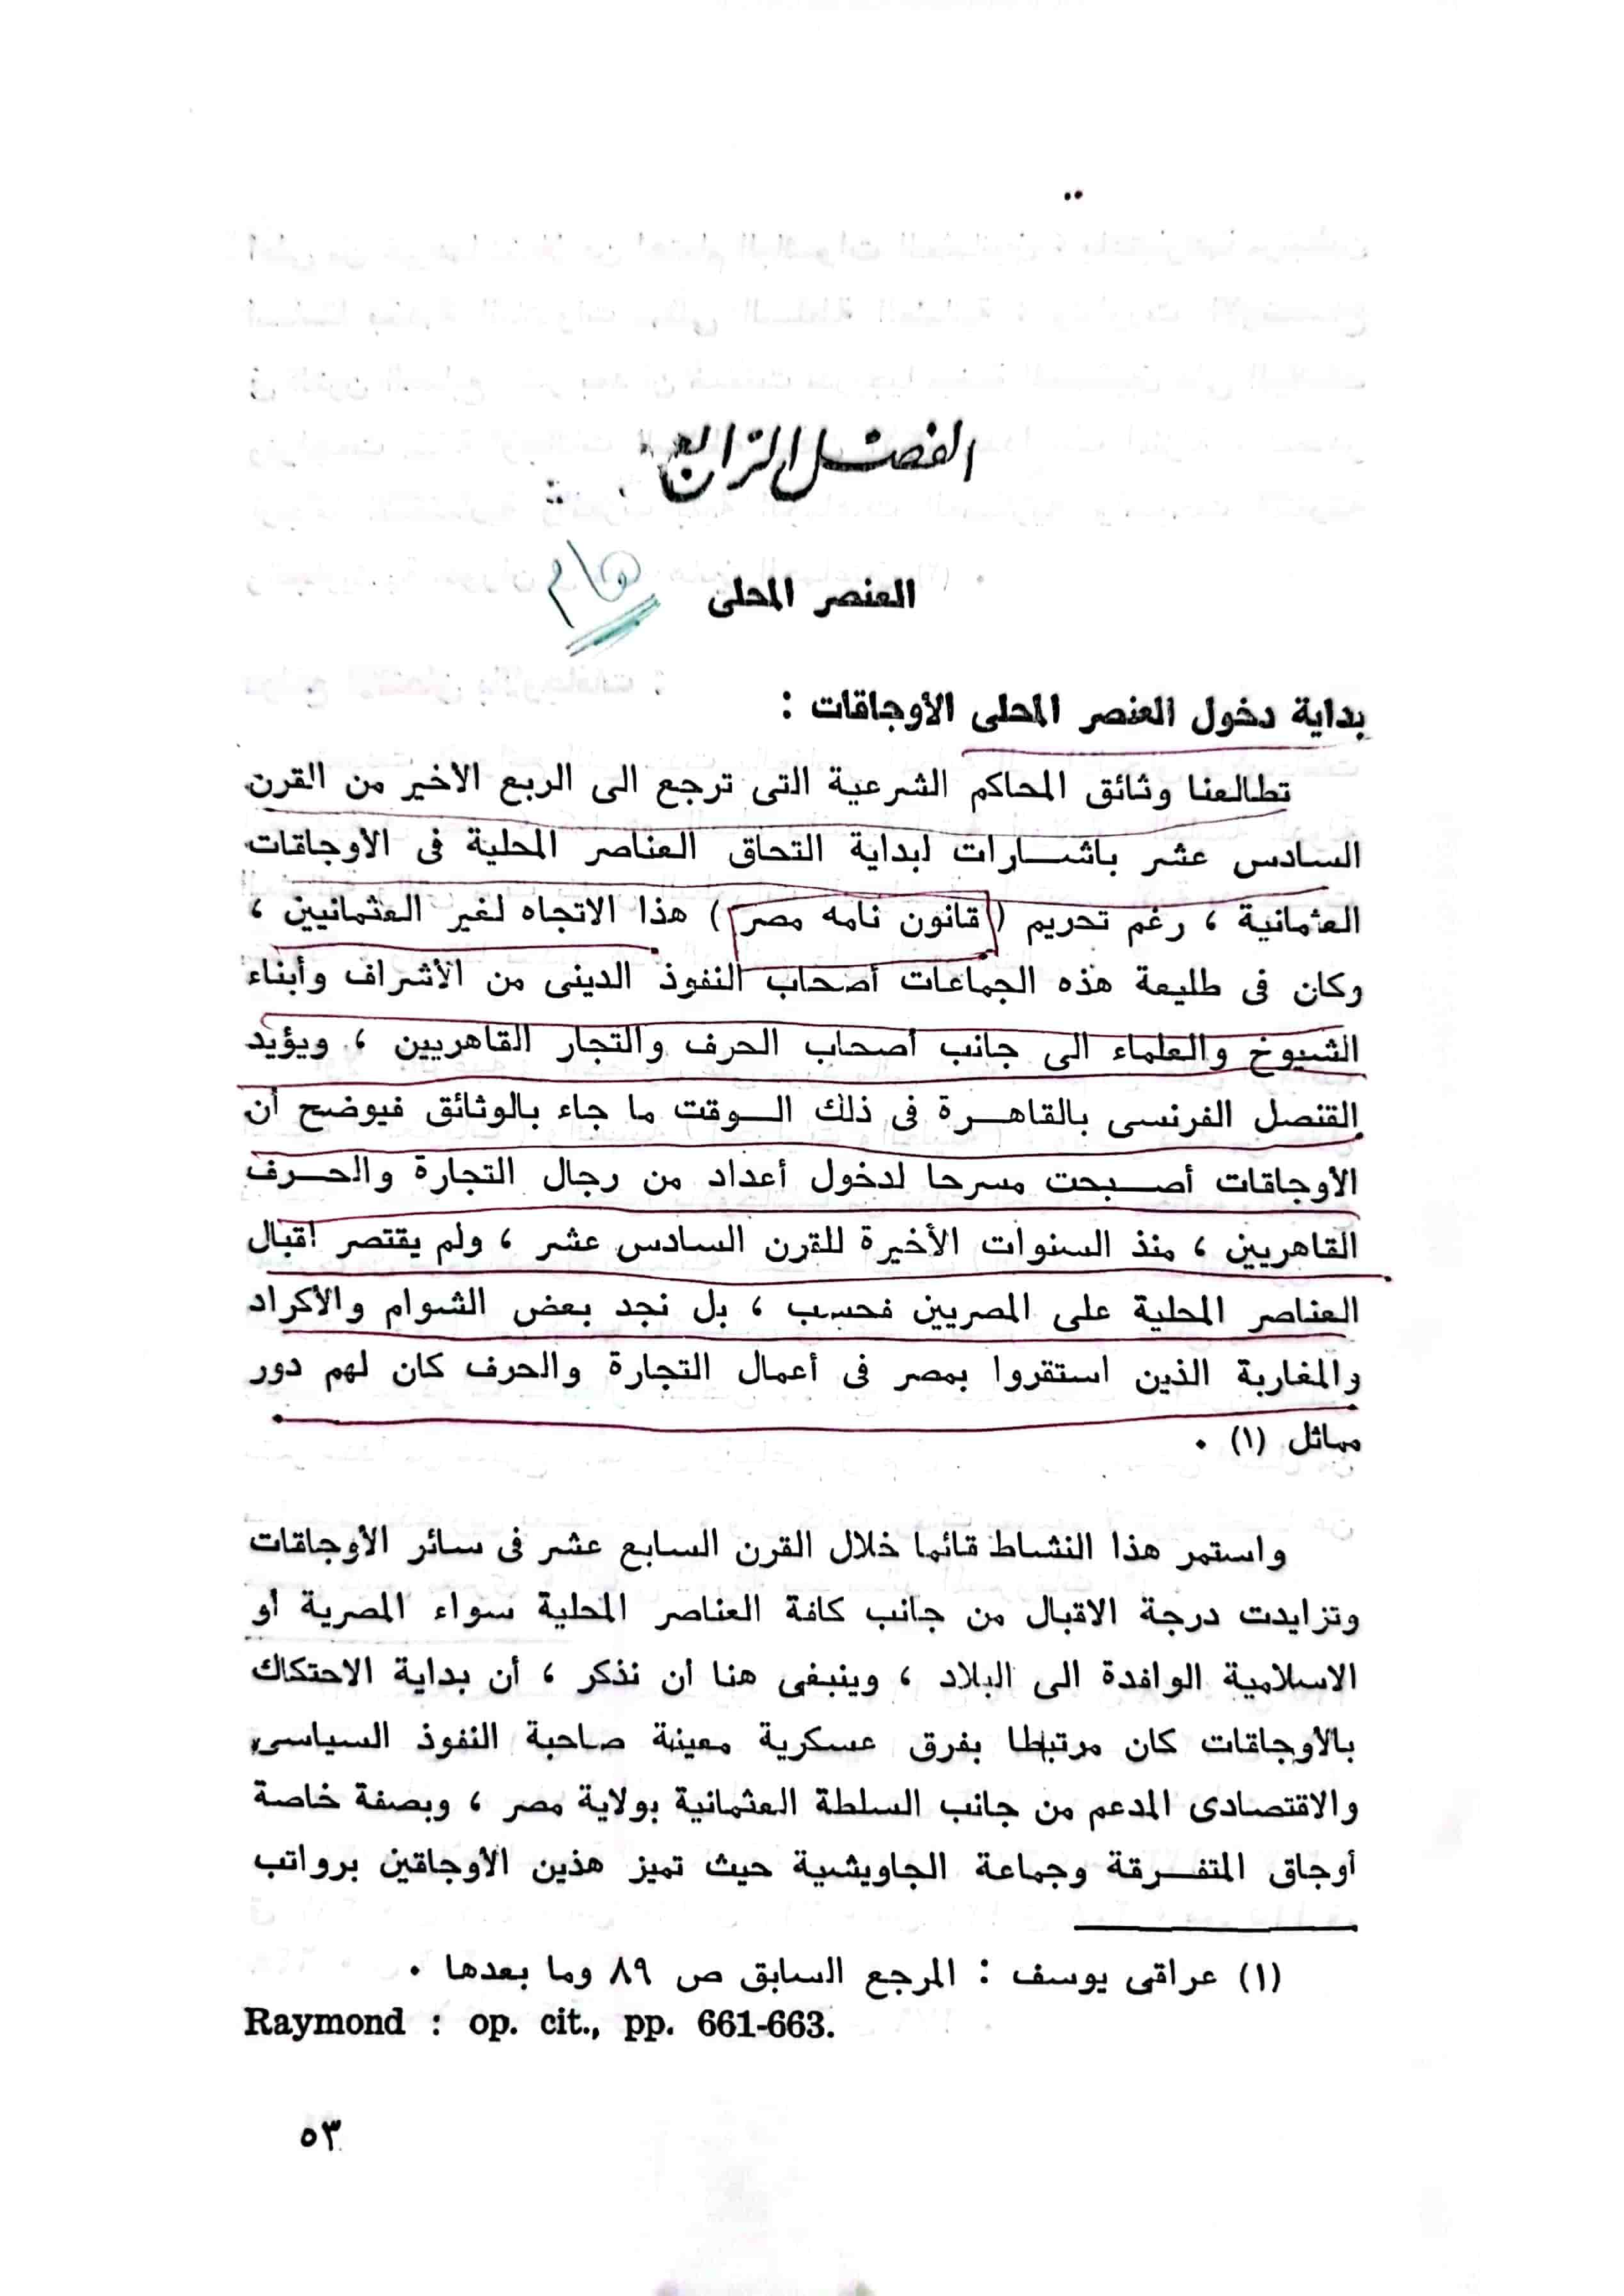 الفصل الرابع
هام
العنصر المحلى
بداية دخول العنصر المحلى الأوجاقات :
تطالعنا وثائق المحاكم الشرعية التى ترجع الى الربع الاخير من القرن
السادس عشر باشارات لبداية التحاق العناصر المحلية فى الأوجاقات
العثمانية ، رغم تحريم (قانون نامه مصر) هذا الاتجاه لغير العثمانيين ،
وكان فى طليعة هذه الجماعات أصحاب النفوذ الدينى من الأشراف وأبناء
الشيوخ والعلماء الى جانب أصحاب الحرف والتجار القاهريين ، ويؤيد
القنصل الفرنسى بالقاهرة فى ذلك الوقت ما جاء بالوثائق فيوضح أن
الأوجاقات أصبحت مسرحا لدخول أعداد من رجال التجارة والحرف
القاهريين ، منذ السنوات الأخيرة للقرن السادس عشر ، ولم يقتصر اقبال
العناصر المحلية على المصريين فحسب ، بل نجد بعض الشوام والأكراد
والمغاربة الذين استقروا بمصر فى أعمال التجارة والحرف كان لهم دور
مماثل (١) .
واستمر هذا النشاط قائما خلال القرن السابع عشر فى سائر الأوجاقات
وتزايدت درجة الاقبال من جانب كافة العناصر المحلية سواء المصرية أو
الاسلامية الوافدة الى البلاد ، وينبغى هنا أن نذكر ، أن بداية الاحتكاك
بالأوجاقات كان مرتبطا بفرق عسكرية معينة صاحبة النفوذ السياسى
والاقتصادى المدعم من جانب السلطة العثمانية بولاية مصر ، وبصفة خاصة
أوجاق المتفرقة وجماعة الجاويشية حيث تميز هذين الأوجاقين برواتب
(١) عراقى يوسف : المرجع السابق ص ٨٩ وما بعدها .
Raymond : op. cit., pp. 661-663.
٥٣